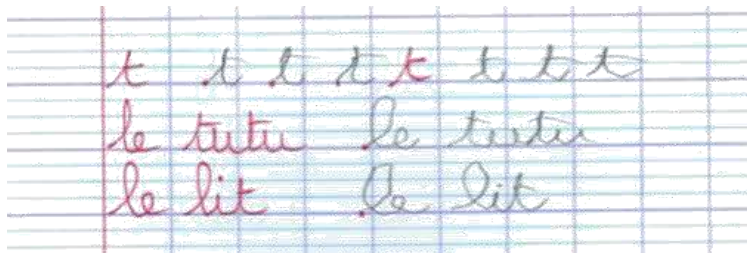 t t t t t t t t
le tutu le tutu
le lit le lit